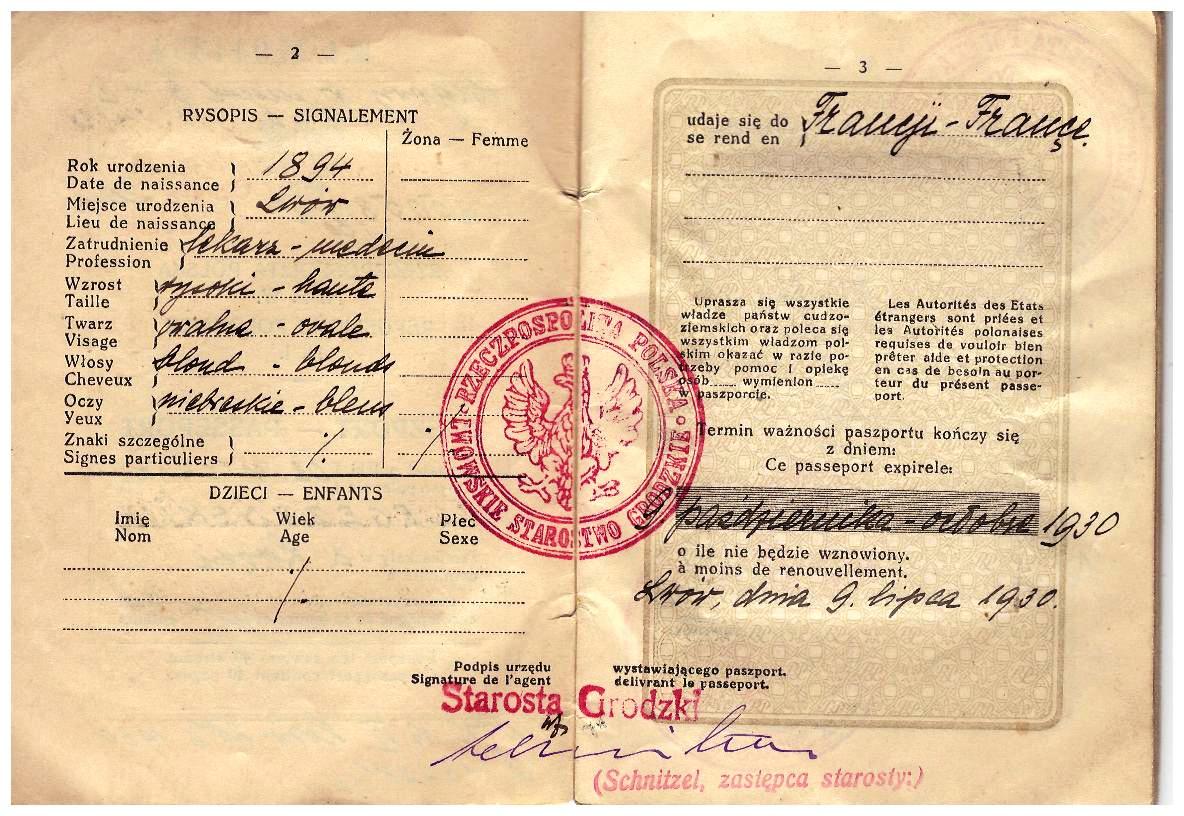 — 2 —
RYSOPIS — SIGNALEMENT
Żona — Femme
Rok urodzenia
Date de naissance
1894
Miejsce urodzenia
Lieu de naissance
Lwów
Zatrudnienie
Profession
lekarz - medecin
Wzrost
Taille
wysoki - haute
Twarz
Visage
owalna - ovale
Włosy
Cheveux
blond - blonds
Oczy
Yeux
niebieskie - bleus
Znaki szczególne
Signes particuliers
·/.
·/.
DZIECI — ENFANTS
Imię Wiek Płeć
Nom Age Sexe
·/.
RZECZPOSPOLITA POLSKA
LWOWSKIE STAROSTWO GRODZKIE
— 3 —
udaje się do
se rend en
Francji - France.
Uprasza się wszystkie
władze państw cudzo-
ziemskich oraz poleca się
wszystkim władzom pol-
skim okazać w razie po-
trzeby pomoc i opiekę
osób...... wymienion......
w paszporcie.
Les Autorités des Etats
étrangers sont priées et
les Autorités polonaises
requises de vouloir bien
prêter aide et protection
en cas de besoin au por-
teur du présent passe-
port.
Termin ważności paszportu kończy się
z dniem:
Ce passeport expirele:
października - octobre 1930
o ile nie będzie wznowiony.
à moins de renouvellement.
Lwów, dnia 9. lipca 1930.
Podpis urzędu wystawiającego paszport.
Signature de l'agent delivrant le passeport.
Starosta Grodzki
(Schnitzel, zastępca starosty:)